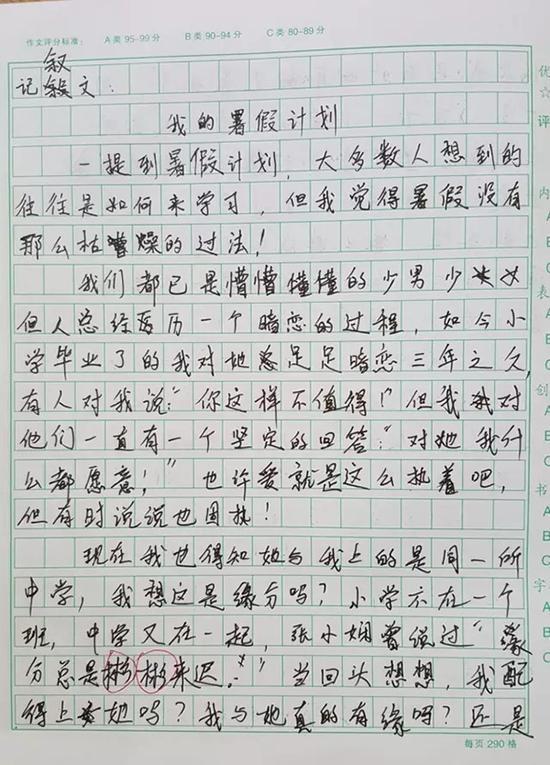 作文评分标准： A 类 95-99 分 B 类 90-94 分 C 类 80-89 分
叙
记文：
我的暑假计划
一提到暑假计划，大多数人想到的
往往是如何来学习，但我觉得暑假没有
那么枯燥的过法！
我们都已是懵懵懂懂的少男少女
但人总经历一个暗恋的过程，如今小
学毕业了的我对她足足暗恋三年之久，
有人对我说：“你这样不值得！”但我对
他们一直有一个坚定的回答：“对她我什
么都愿意！”也许爱就是这么执着吧，
但有时说说也固执！
现在我也得知她与我上的是同一所
中学，我想这是缘分吗？小学不在一个
班，中学又在一起，张小娴曾说过“缘
分总是来迟。”当回头想想，我配
得上她吗？我与她真的有缘吗？还是
每页 290 格
优
☆
评
内
A
B
C
表
A
B
C
创
A
B
C
书
A
B
C
字
A
B
C